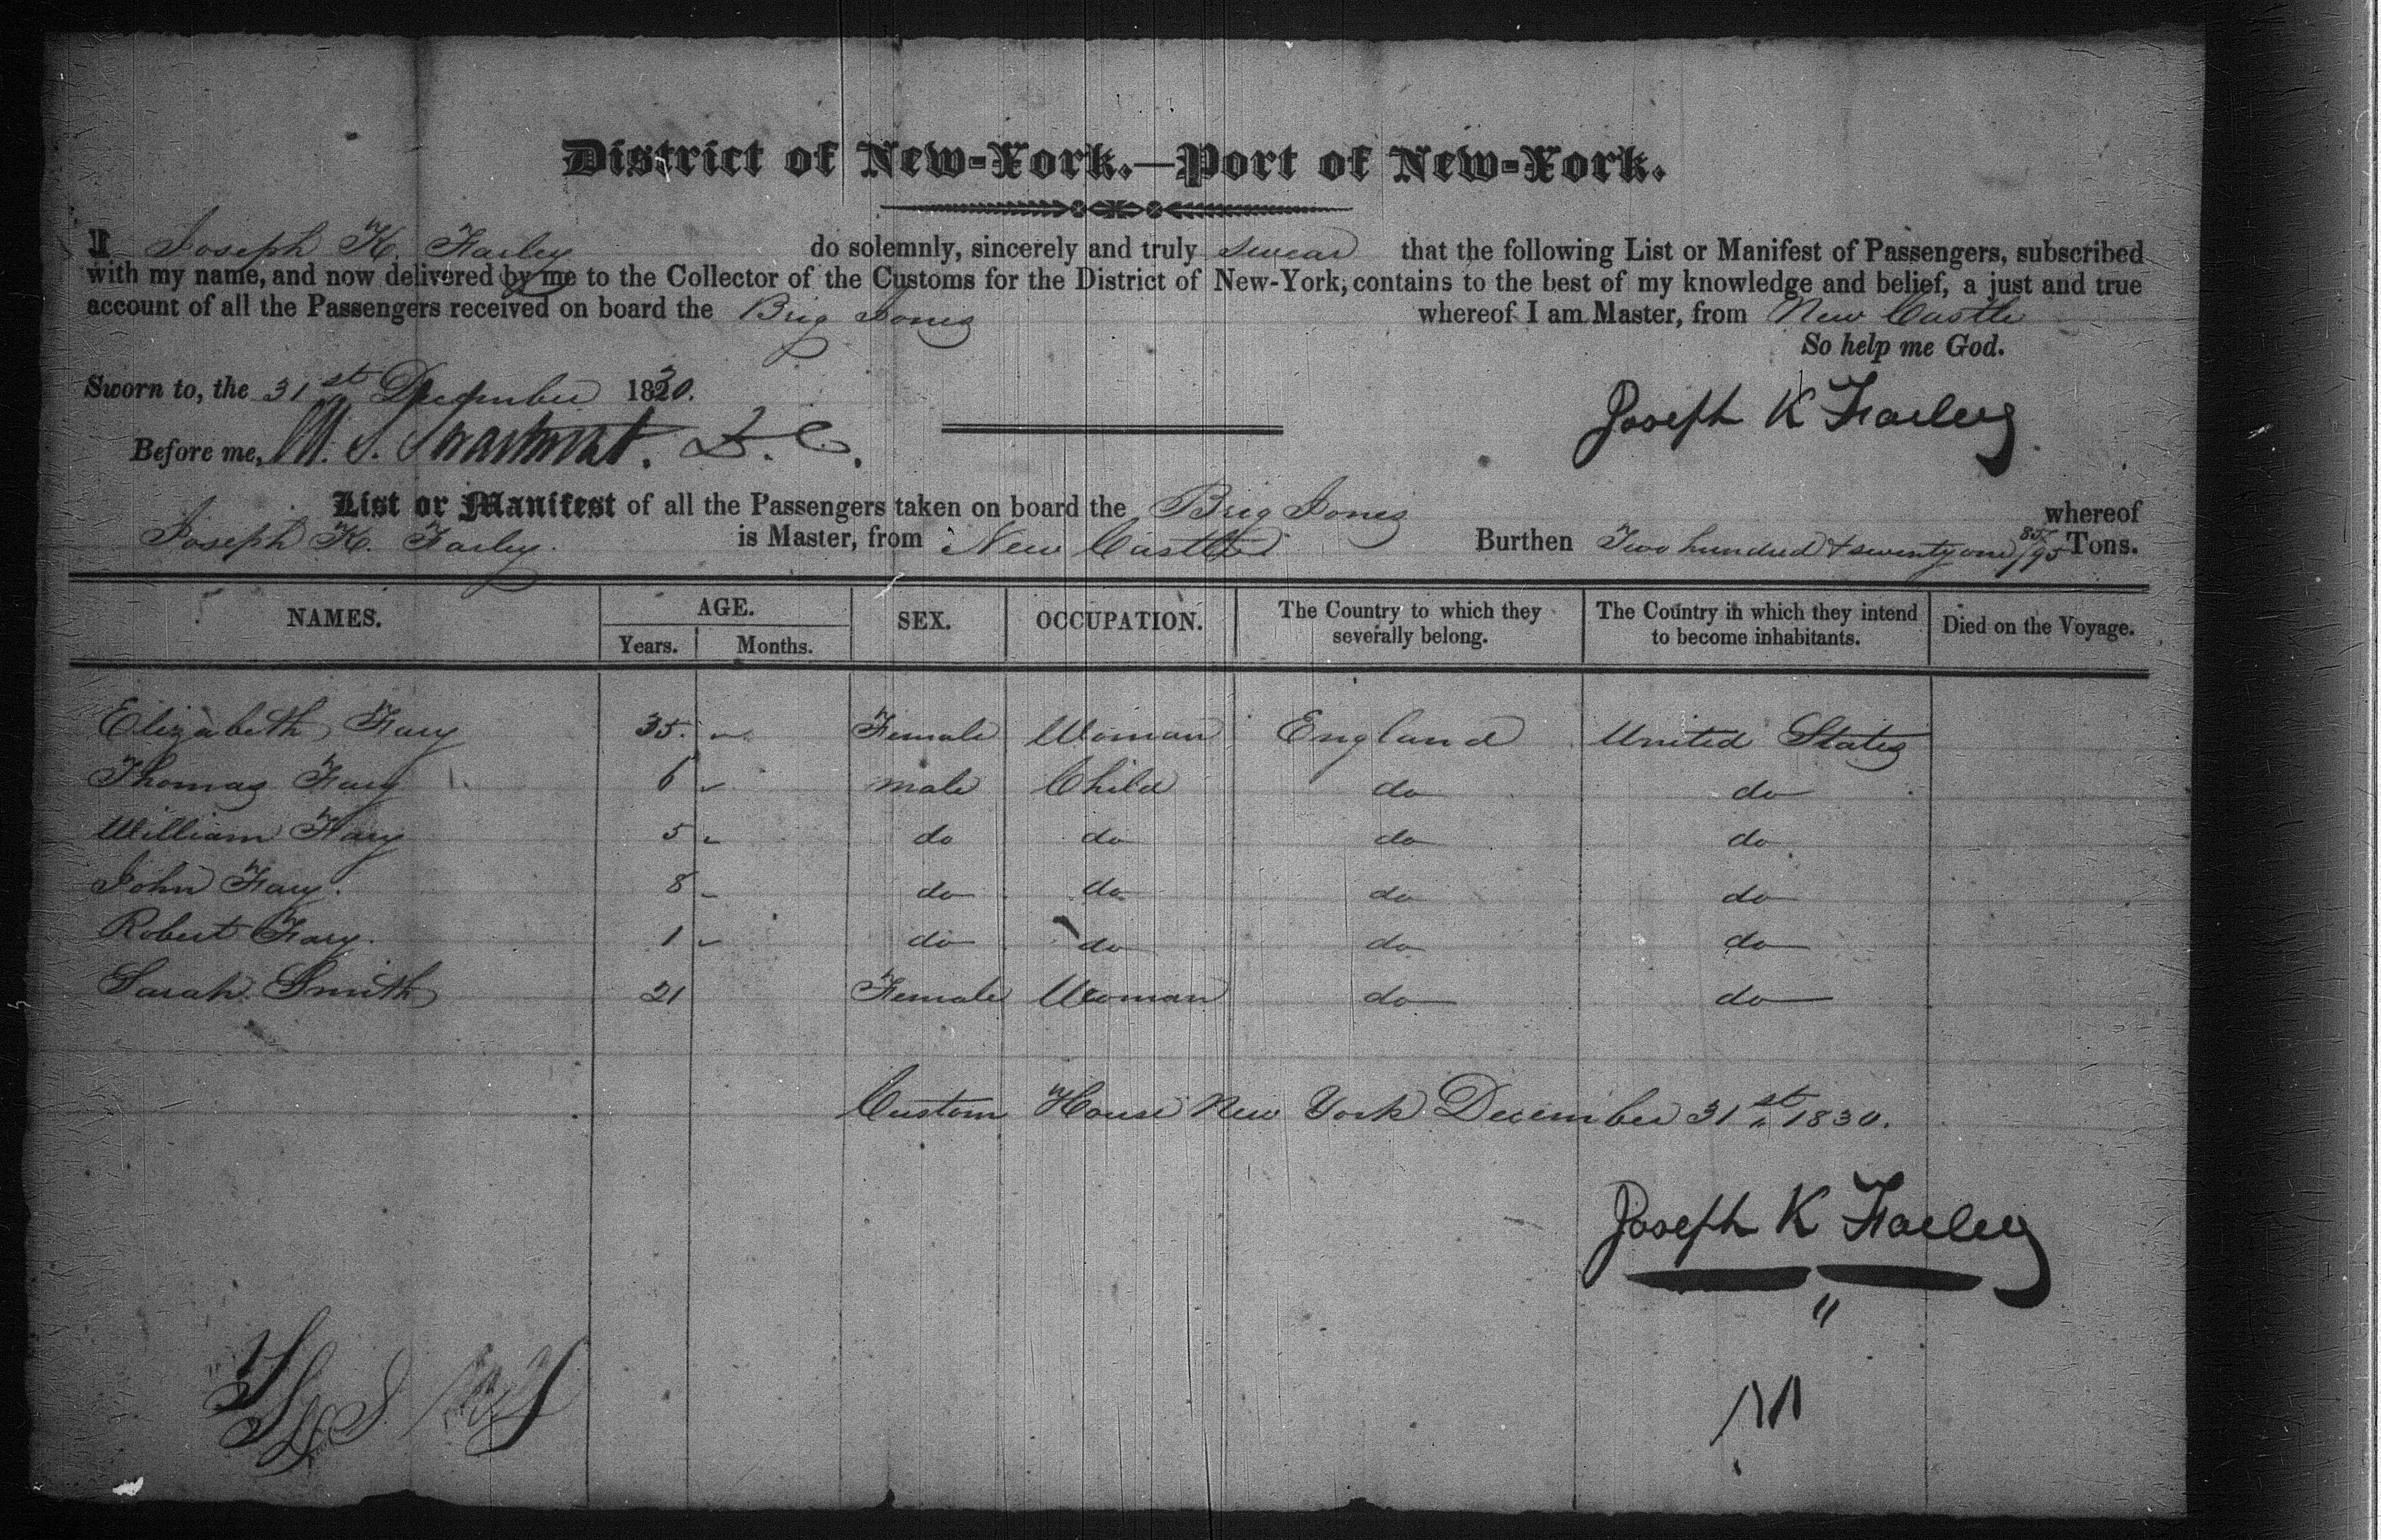 District of New-York.—Port of New-York.
I Joseph K. Farley do solemnly, sincerely and truly swear that the following List or Manifest of Passengers, subscribed
with my name, and now delivered by me to the Collector of the Customs for the District of New-York, contains to the best of my knowledge and belief, a just and true
account of all the Passengers received on board the Brig Jones whereof I am Master, from New Castle
So help me God.
Sworn to, the 31st December 1830.
Joseph K Farley
Before me, M. S. Swartwout. D. C.
List or Manifest of all the Passengers taken on board the Brig Jones whereof
Joseph K. Farley is Master, from New Castle Burthen Two hundred & twenty one 85/95 Tons.
NAMES. AGE. SEX. OCCUPATION. The Country to which they severally belong. The Country in which they intend to become inhabitants. Died on the Voyage.
Years. Months.
Elizabeth Fary 35. Female Woman England United States
Thomas Fary 6 male Child do do
William Fary 5 do do do do
John Fary. 8 do do do do
Robert Fary. 1 do do do do
Sarah Smith 21 Female Woman do do
Custom House New York December 31st 1830.
Joseph K Farley